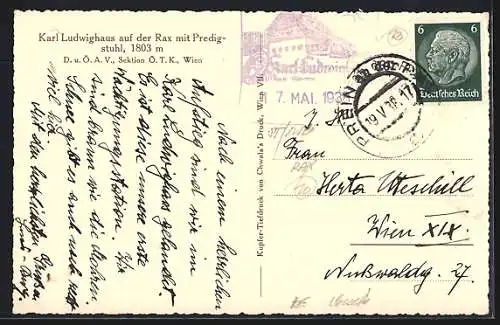 Karl Ludwighaus auf der Rax mit Predig-
stuhl, 1803 m
D. u. Ö. A. V., Sektion Ö. T. K., Wien
Nach einem herrlichen
Aufstieg sind wir im
Karl Ludwighaus gelandet.
Es ist diese unsere erste
Nächtigungsstation. Wir
sind braun wie die Mohren.
Schnee gibt es auch noch recht
viel hier.
Mit den herzlichsten Grüßen
Kupfer-Tiefdruck von Chwala's Druck, Wien VII.
Karl Ludwig
7. MAI. 193
19.V.38.17
6 6
Deutsches Reich
Frau
Herta Utteschill
Wien XIX.
Nußwaldg. 27.